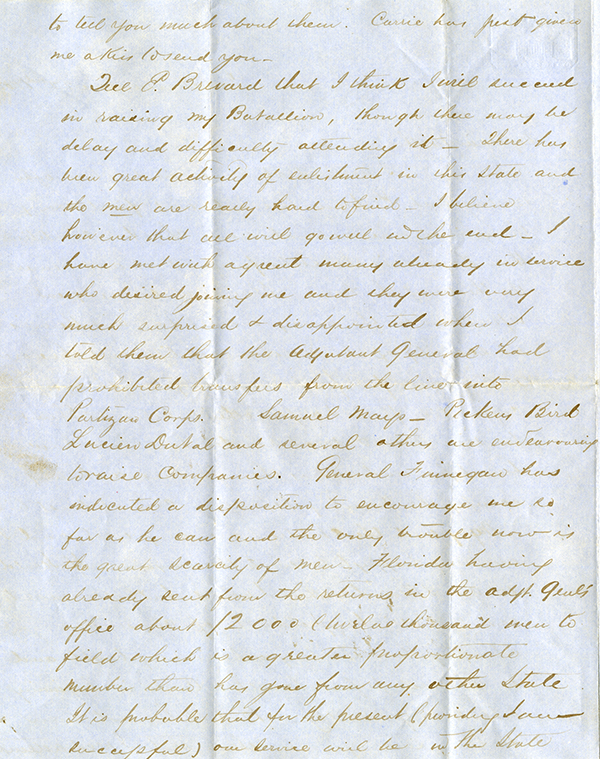 to tell you much about them. Carrie has just given
me a kiss to send you —
Tell P. Brevard that I think I will succeed
in raising my Batallion, though there may be
delay and difficulty attending it — There has
been great activity of enlistment in this State and
the men are really hard to find — I believe
however that all will go well in the end — I
have met with a great many already in service
who desired joining me and they were very
much surprised & disappointed when I
told them that the Adjutant General had
prohibited transfers from the line into
Partizan Corps. Samuel Mays — Pickens Bird
Lucien Duval and several others are endeavouring
to raise Companies. General Finnegan has
indicated a disposition to encourage me so
far as he can and the only trouble now is
the great scarcity of men — Florida having
already sent from the returns in the adjt. Genl's
office about 12000 (twelve thousand men to
field which is a greater proportionate
number than has gone from any other State
It is probable that for the present (providing I am
successful) our service will be in the State